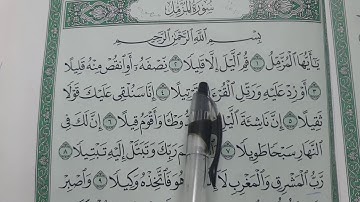 سُورَةُ المُزَّمِّلِ
بِسْمِ اللَّهِ الرَّحْمَٰنِ الرَّحِيمِ
يَا أَيُّهَا الْمُزَّمِّلُ ١ قُمِ اللَّيْلَ إِلَّا قَلِيلًا ٢ نِّصْفَهُ أَوِ انقُصْ مِنْهُ قَلِيلًا
٣ أَوْ زِدْ عَلَيْهِ وَرَتِّلِ الْقُرْءَ تِيلًا ٤ إِنَّا سَنُلْقِي عَلَيْكَ قَوْلًا
ثَقِيلًا ٥ إِنَّ نَاشِئَةَ اللَّيْلِ وَطْئًا وَأَقْوَمُ قِيلًا ٦ إِنَّ لَكَ فِي
النَّهَارِ سَبْحًا طَوِيلًا ٧ رَبِّكَ وَتَبَتَّلْ إِلَيْهِ تَبْتِيلًا ٨
رَّبُّ الْمَشْرِقِ وَالْمَغْرِبِ لَا هُوَ فَاتَّخِذْهُ وَكِيلًا ٩ وَاصْبِرْ